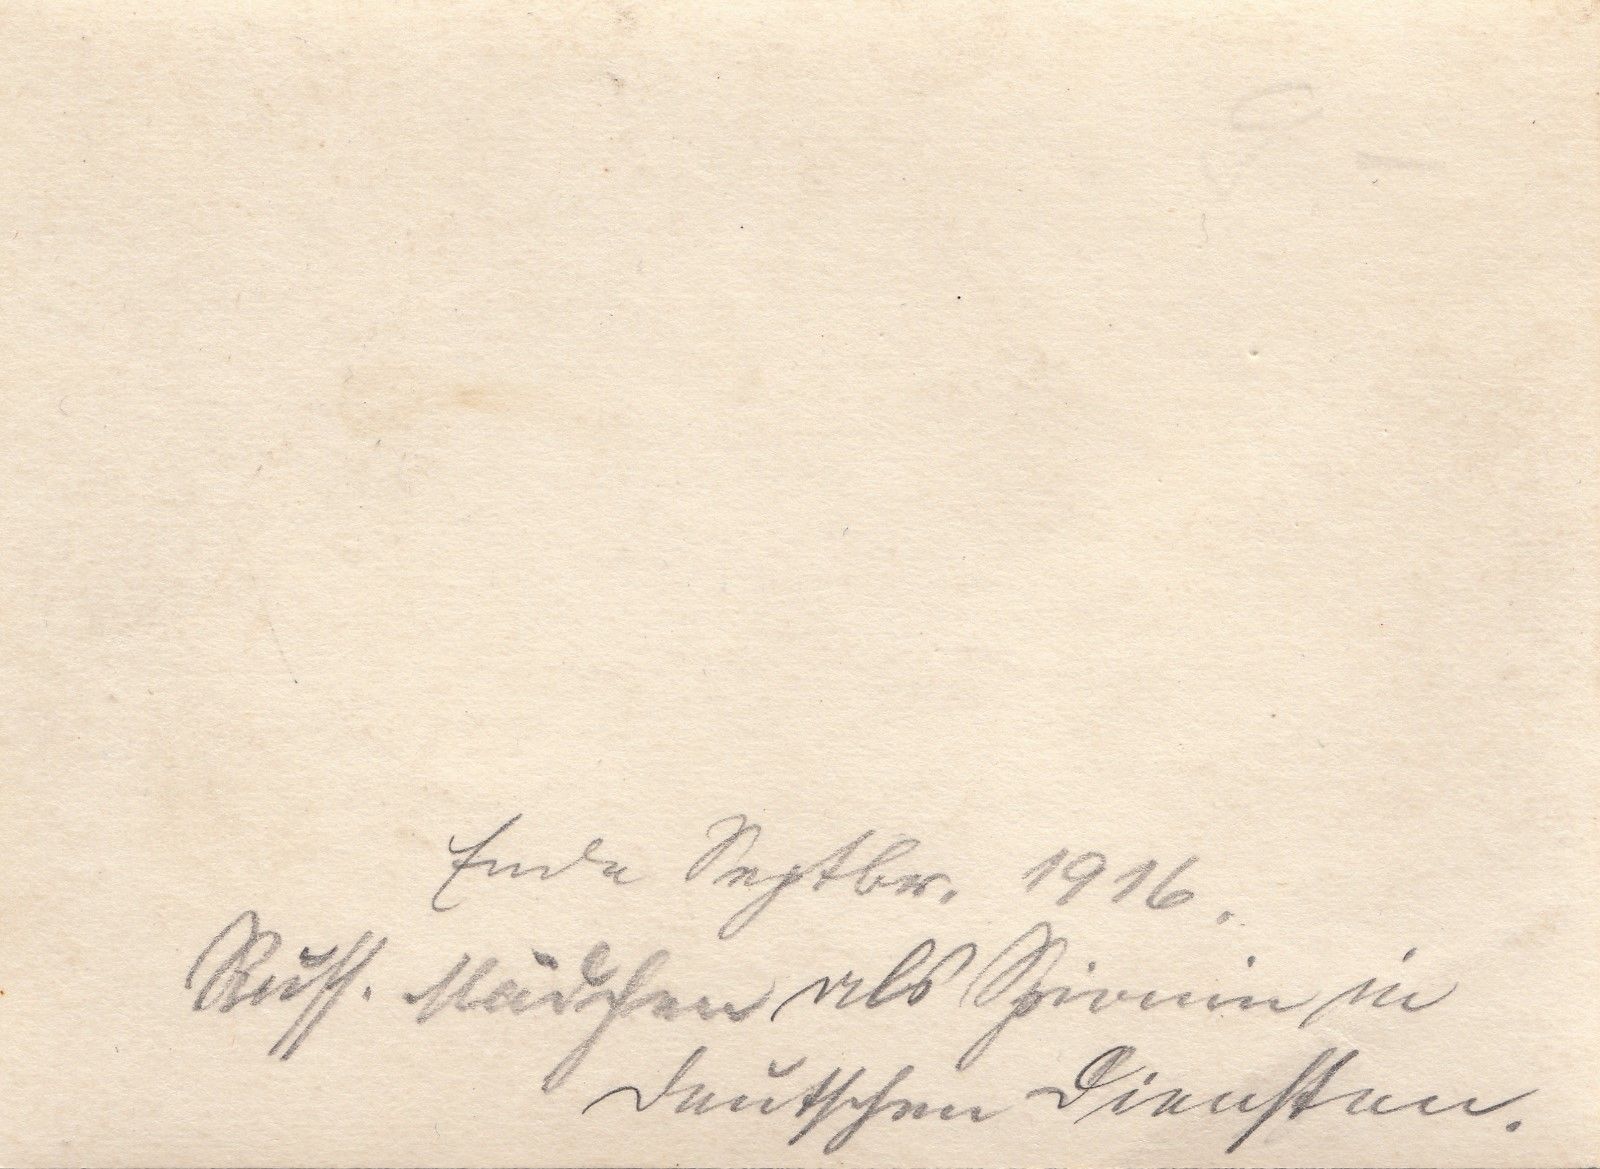 Ende Septbr. 1916.
Russ. Mädchen als Spionin in
deutschen Diensten.